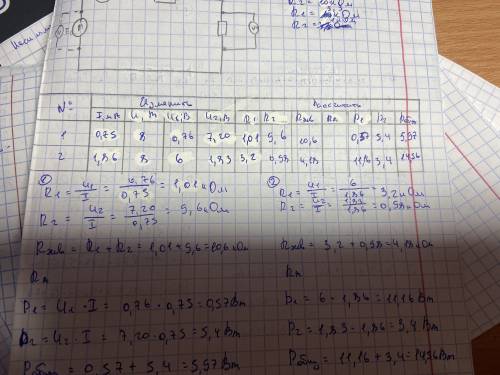 R2 = 10кОм
R1 = кОм
R2 =
№ Измерить Рассчитать
I, мА U, В U1, В U2, В R1 R2 Rэкв Rп P1 P2 Pобщ
1 0,75 8 0,76 7,20 1,01 9,6 10,6 0,57 5,4 5,97
2 1,86 8 6 1,83 3,2 0,98 4,18 11,16 3,4 14,56
① R1 = U1/I = 0,76/0,75 = 1,01 кОм
R2 = U2/I = 7,20/0,75 = 9,6 кОм
Rэкв = R1 + R2 = 1,01 + 9,6 = 10,6 кОм
Rп
P1 = U1 · I = 0,76 · 0,75 = 0,57 Вт
P2 = U2 · I = 7,20 · 0,75 = 5,4 Вт
Pобщ = 0,57 + 5,4 = 5,97 Вт
② R1 = U1/I = 6/1,86 = 3,2 кОм
R2 = U2/I = 1,83/1,86 = 0,98 кОм
Rэкв = 3,2 + 0,98 = 4,18 кОм
Rп
P1 = 6 · 1,86 = 11,16 Вт
P2 = 1,83 · 1,86 = 3,4 Вт
Pобщ = 11,16 + 3,4 = 14,56 Вт